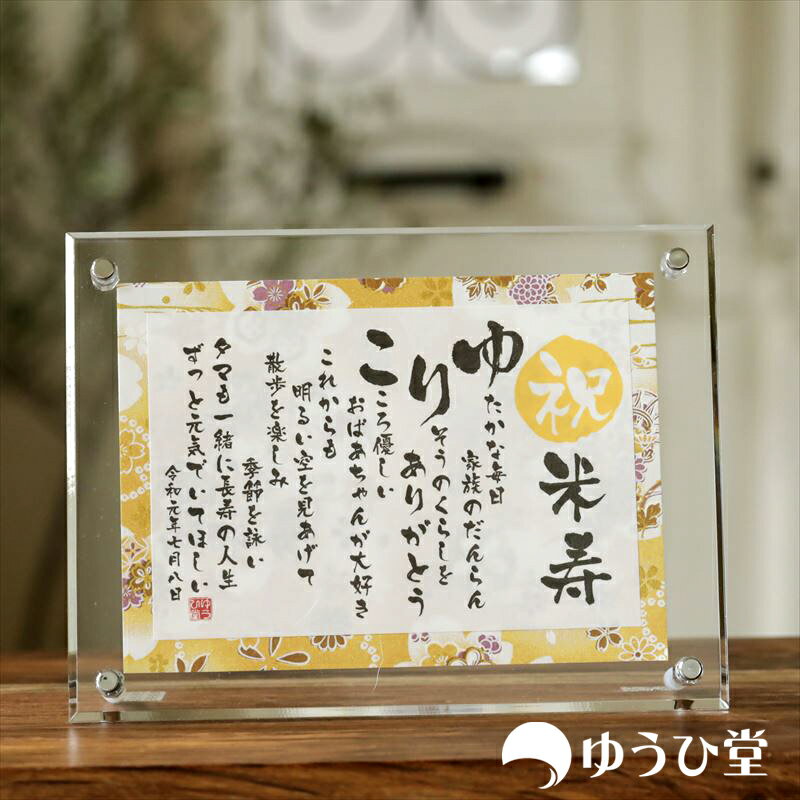 祝
米寿
ゆたかな毎日
家族のだんらん
りそうのくらしを
ありがとう
こころ優しい
おばあちゃんが大好き
これからも
明るい空を見あげて
散歩を楽しみ
季節を詠い
タマも一緒に長寿の人生
ずっと元気でいてほしい
令和元年七月八日
ゆうひ堂
ゆうひ堂